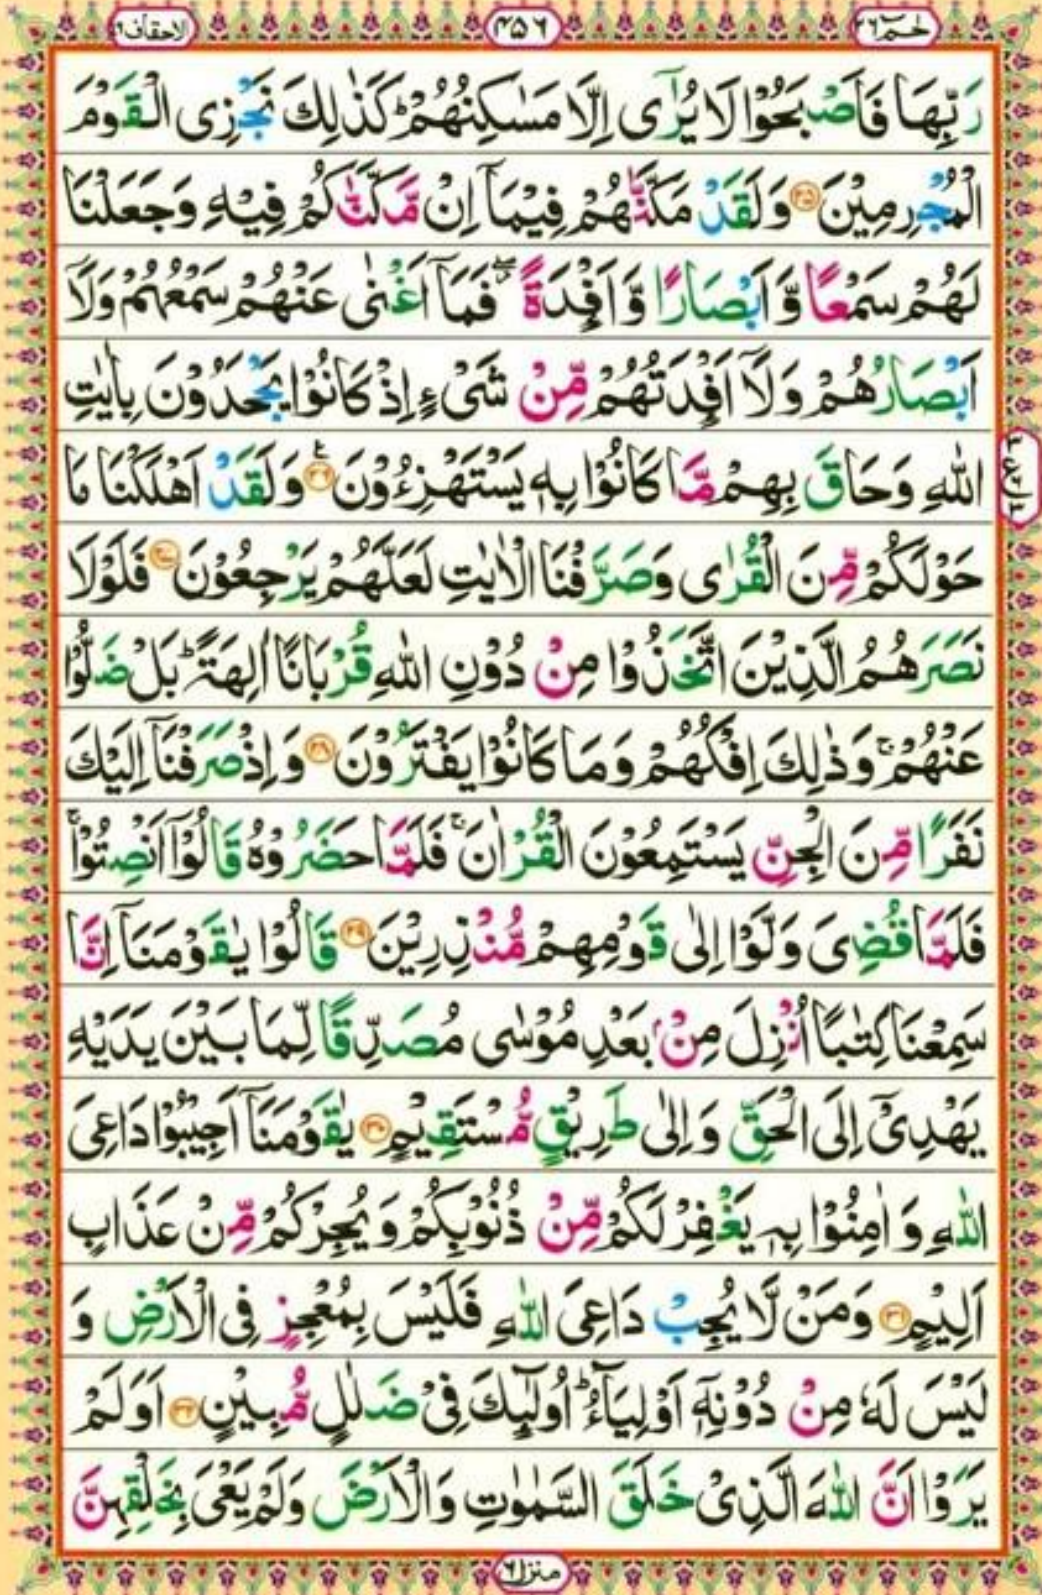 الاحقاف ۴۶
۴۵۶
حٰمٓ ۲۶
رَبِّهَا فَاَصْبَحُوْا لَا يُرٰۤى اِلَّا مَسٰكِنُهُمْ ؕ كَذٰلِكَ نَجْزِى الْقَوْمَ
الْمُجْرِمِيْنَ ﴿۲۵﴾ وَلَقَدْ مَكَّنّٰهُمْ فِيْمَاۤ اِنْ مَّكَّنّٰكُمْ فِيْهِ وَجَعَلْنَا
لَهُمْ سَمْعًا وَّ اَبْصَارًا وَّ اَفْـِٕدَةً ۖ فَمَاۤ اَغْنٰى عَنْهُمْ سَمْعُهُمْ وَلَاۤ
اَبْصَارُهُمْ وَلَاۤ اَفْـِٕدَتُهُمْ مِّنْ شَىْءٍ اِذْ كَانُوْا يَجْحَدُوْنَ بِاٰيٰتِ
اللّٰهِ وَحَاقَ بِهِمْ مَّا كَانُوْا بِهٖ يَسْتَهْزِءُوْنَ ﴿۲۶﴾ وَلَقَدْ اَهْلَكْنَا مَا
حَوْلَكُمْ مِّنَ الْقُرٰى وَصَرَّفْنَا الْاٰيٰتِ لَعَلَّهُمْ يَرْجِعُوْنَ ﴿۲۷﴾ فَلَوْلَا
نَصَرَهُمُ الَّذِيْنَ اتَّخَذُوْا مِنْ دُوْنِ اللّٰهِ قُرْبَانًا اٰلِهَةً ؕ بَلْ ضَلُّوْا
عَنْهُمْ ۚ وَذٰلِكَ اِفْكُهُمْ وَمَا كَانُوْا يَفْتَرُوْنَ ﴿۲۸﴾ وَاِذْ صَرَفْنَاۤ اِلَيْكَ
نَفَرًا مِّنَ الْجِنِّ يَسْتَمِعُوْنَ الْقُرْاٰنَ ۚ فَلَمَّا حَضَرُوْهُ قَالُوْۤا اَنْصِتُوْا ۚ
فَلَمَّا قُضِىَ وَلَّوْا اِلٰى قَوْمِهِمْ مُّنْذِرِيْنَ ﴿۲۹﴾ قَالُوْا يٰقَوْمَنَاۤ اِنَّا
سَمِعْنَا كِتٰبًا اُنْزِلَ مِنْۢ بَعْدِ مُوْسٰى مُصَدِّقًا لِّمَا بَيْنَ يَدَيْهِ
يَهْدِىْۤ اِلَى الْحَقِّ وَاِلٰى طَرِيْقٍ مُّسْتَقِيْمٍ ﴿۳۰﴾ يٰقَوْمَنَاۤ اَجِيْبُوْا دَاعِىَ
اللّٰهِ وَ اٰمِنُوْا بِهٖ يَغْفِرْ لَكُمْ مِّنْ ذُنُوْبِكُمْ وَيُجِرْكُمْ مِّنْ عَذَابٍ
اَلِيْمٍ ﴿۳۱﴾ وَمَنْ لَّا يُجِبْ دَاعِىَ اللّٰهِ فَلَيْسَ بِمُعْجِزٍ فِى الْاَرْضِ وَ
لَيْسَ لَهٗ مِنْ دُوْنِهٖۤ اَوْلِيَآءُ ؕ اُولٰٓئِكَ فِىْ ضَلٰلٍ مُّبِيْنٍ ﴿۳۲﴾ اَوَلَمْ
يَرَوْا اَنَّ اللّٰهَ الَّذِىْ خَلَقَ السَّمٰوٰتِ وَالْاَرْضَ وَلَمْ يَعْىَ بِخَلْقِهِنَّ
منزل ۶